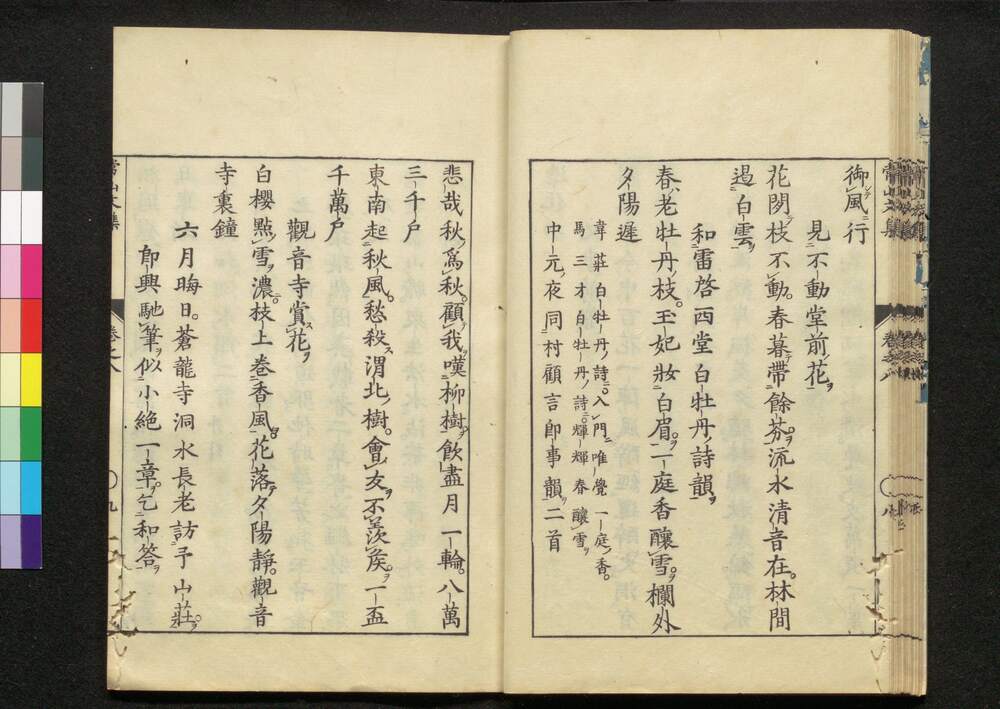 御風行
見不動堂前花
花閉枝不動春暮帶餘芬流水清音在林間
過白雲
和雷啓西堂白牡丹詩韻
春老牡丹枝玉妃妝白眉一庭香釀雪欄外
夕陽遲
韋莊白牡丹詩入門唯覺一庭香
馬三才白牡丹詩輝輝春釀雪
中元夜同村顧言即事韻二首
悲哉秋爲秋顧我嘆柳樹飲盡月一輪八萬
三千戸
東南起秋風愁殺渭北樹會友不羨侯一盃
千萬戸
觀音寺賞花
白櫻點雪濃枝上卷香風花落夕陽靜觀音
寺裏鐘
六月晦日蒼龍寺洞水長老訪予山莊
即興馳筆似小絶一章乞和答
常山文集
卷之八
九